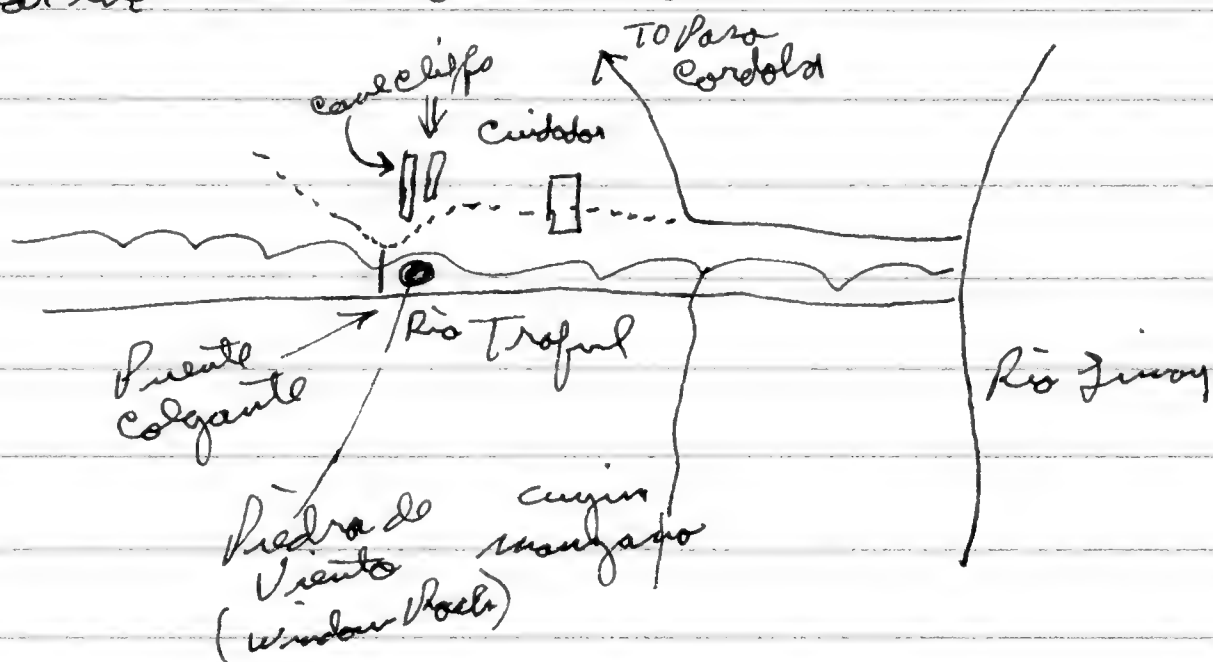 TO Paso
Cordoba
Cave Cliffs
Cuidador
Rio Traful
Puente
Colgante
Rio Limay
Piedra de
Viento
(Window Rock)
cuyin
manzano